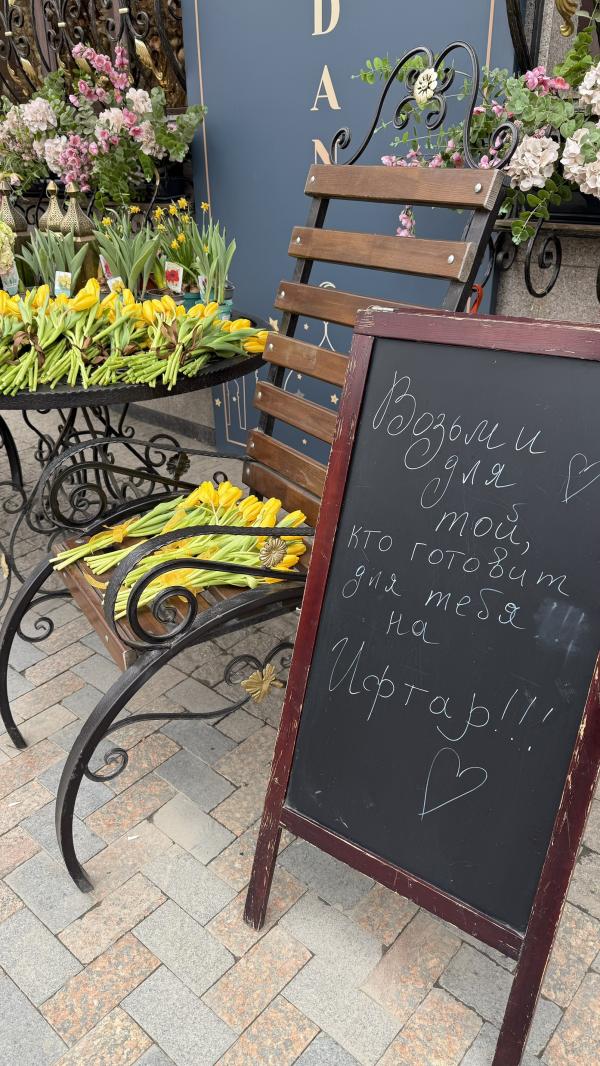 DAN
Возьми
для
той,
кто готовит
для тебя
на
Ифтар!!!